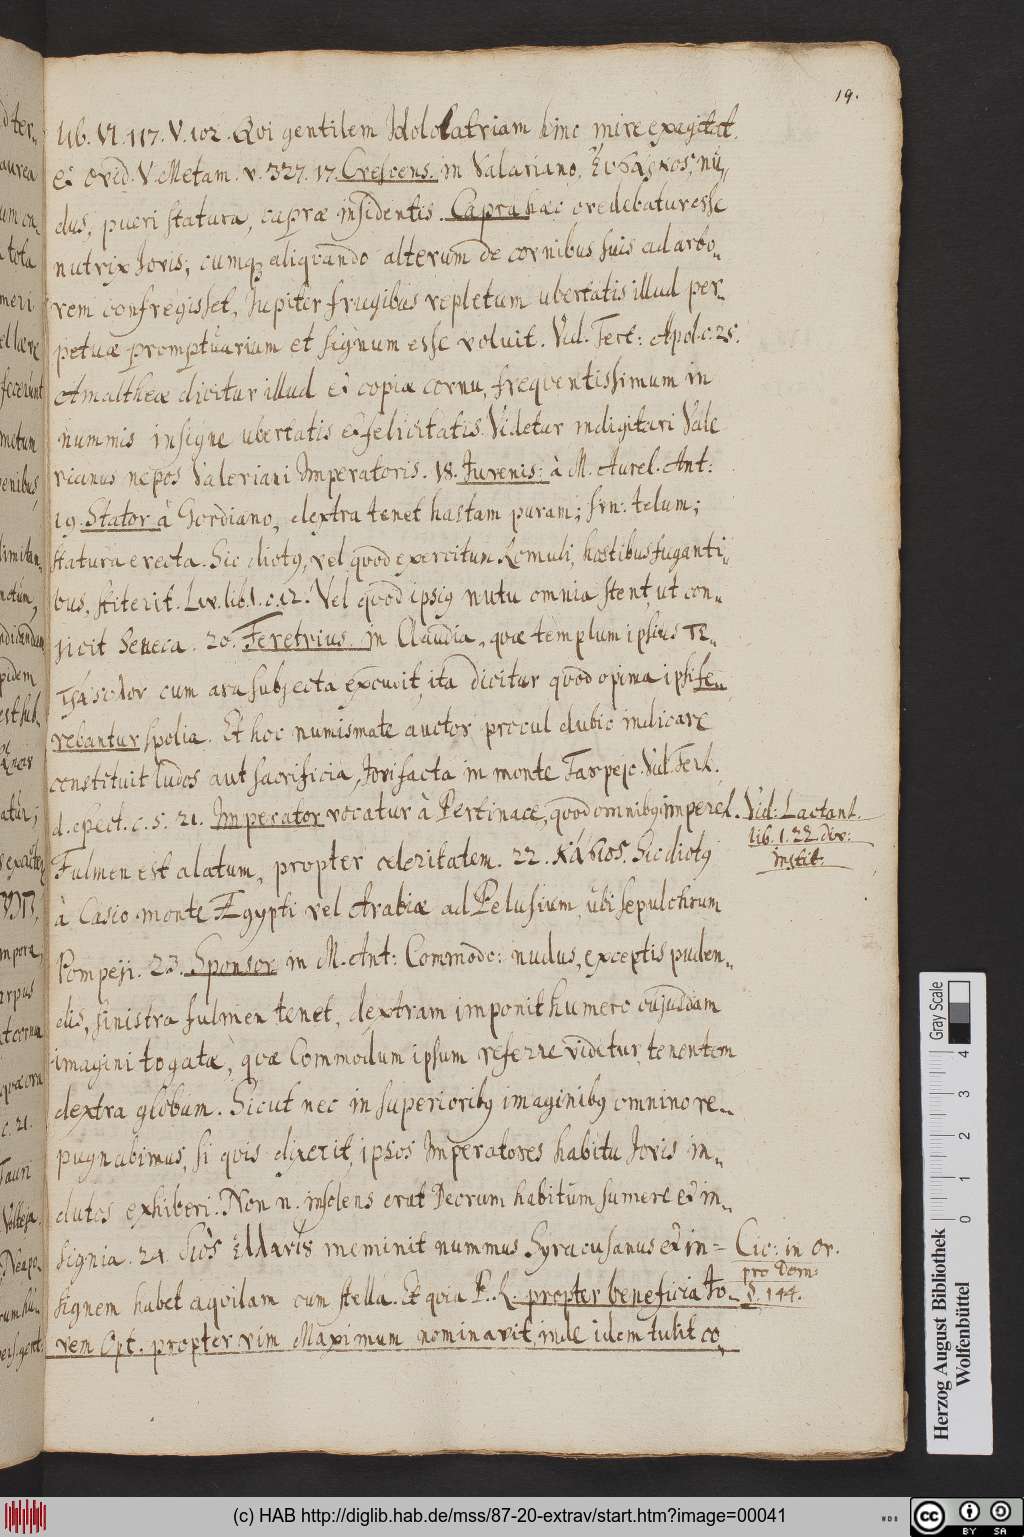 19.
lib. VI. 117. V. 102. Qvi gentilem Idololatriam hinc mire exagitat.
et Ovid. V. Metam. v. 327. 17. Crescens. in Valeriano. nu„
dus, pueri statura, capræ insidentis. Capra hæc credebatur esse
nutrix Jovis; cumq; aliqvando alterum de cornibus suis ad arbo„
rem confregisset, Jupiter frugibus repletum ubertatis illud per„
petuæ promptuarium et signum esse voluit. Vid. Tert: Apol. c. 25.
Amaltheæ dicitur illud et copiæ cornu, freqventissimum in
nummis insigne ubertatis et felicitatis. Videtur indigitari Vale
rianus nepos Valeriani Imperatoris. 18. Juvenis: à M. Aurel. Ant:
19. Stator à Gordiano, dextra tenet hastam puram; sin: telum;
statura erecta. Sic dictq, vel qvod exercitum Romuli, hostibus fuganti„
bus, stiterit. Liv. lib. 1. c. 12. Vel qvod ipsiq nutu omnia stent, ut con„
jicit Seneca. 20. Feretrius. in Claudia, qvæ templum ipsius
cum ara subjecta excudit, ita dicitur qvod opima ipsi fe„
rebantur spolia. Et hoc numismate auctor procul dubio indicare
constituit ludos aut sacrificia, Jovi facta in monte Tarpejo. Vid. Tert.
d. spect. c. 5. 21. Imperator vocatur à Pertinace, qvod omnibq imperet. Vid: Lactant.
lib. 1. 22. div:
instit.
Fulmen est alatum, propter celeritatem. 22. Κάσιος. Sic dictq
à Casio monte Ægypti vel Arabiæ ad Pelusium, ubi sepulchrum
Pompeji. 23. Sponsor in M. Ant: Commodo: nudus, exceptis puden„
dis, sinistra fulmen tenet, dextram imponit humero cujusdam
imagini togatæ, qvæ Commodum ipsum referre videtur, tenentem
dextra globum. Sicut nec in superioribq imaginibq omnino re„
pugnabimus, si qvis dixerit, ipsos Imperatores habitu Jovis in„
dutos exhiberi. Non n. insolens erat Deorum habitum sumere et in„
signia. 24. meminit nummus Syracusanus et in= Cic: in or.
pro Dom:
§. 144.
signem habet aqvilam cum stella. Et qvia P. R. propter beneficia Jo„
vem Opt. propter vim Maximum nominavit, inde idem tulit co„
Gray Scale
0 1 2 3 4
Herzog August Bibliothek
Wolfenbüttel
(c) HAB http://diglib.hab.de/mss/87-20-extrav/start.htm?image=00041
cc BY SA